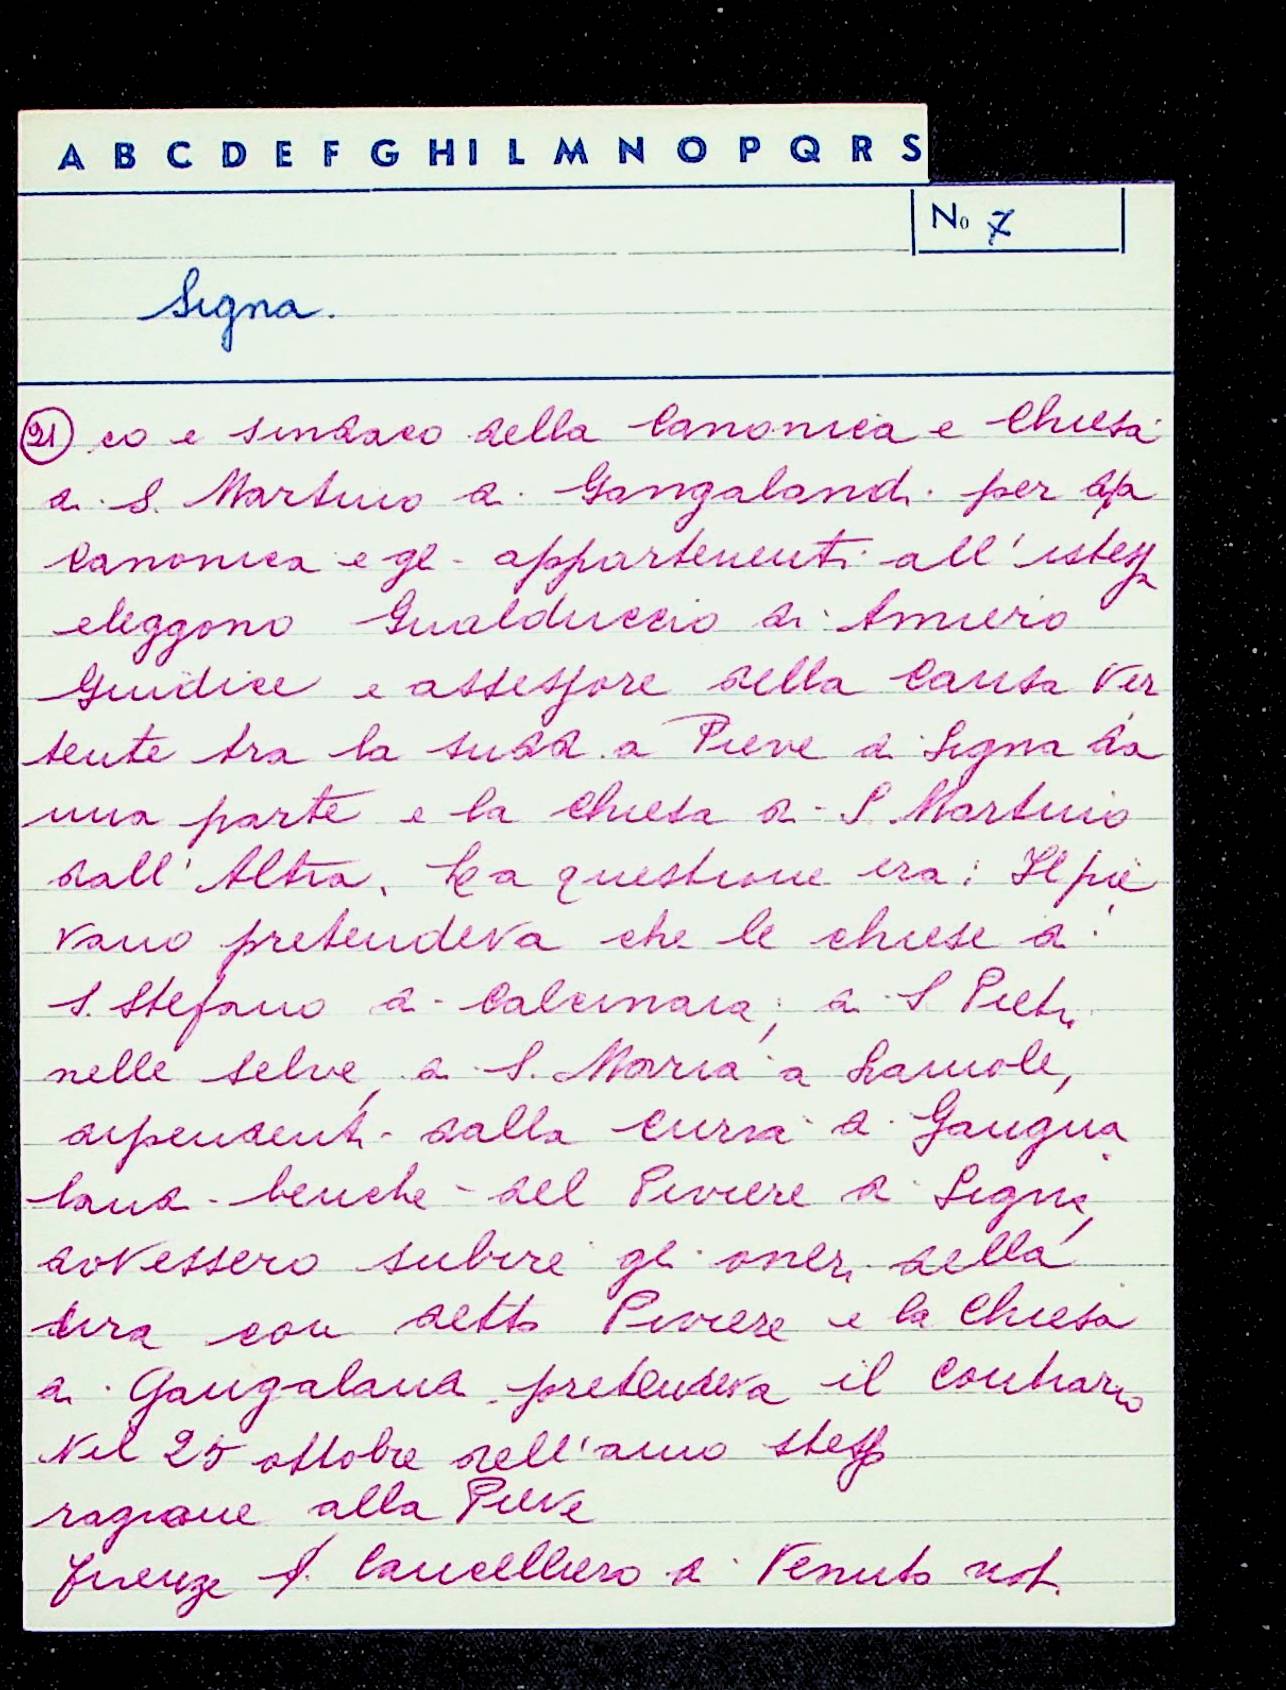 A B C D E F G H I L M N O P Q R S
No 7
Signa.
21 co e sindaco della Canonica e Chiesa
di S. Martino di Gangalandi per da
Canonica e gli appartenenti all'istessa
eleggono Gualduccio di Amiero
Giudice e assessore della Causa Ver
tente tra la sudd.a Pieve di Signa da
una parte e la chiesa di S. Martino
dall'Altra. La questione era: Il pie
vano pretendeva che le chiese di
S. Stefano di Calcinaia, di S Pietr.
nelle selve, di S. Maria a Lamole,
dipendenti dalla curia di Gangua
landi benche del Piviere di Signa,
dovessero subire gli oneri della
cura con detto Piviere e la Chiesa
di Gangaland pretendeva il contrario
Nel 25 ottobre dell'anno stesso
ragione alla Pieve
Firenze S. Cancelliero di Venuto not.